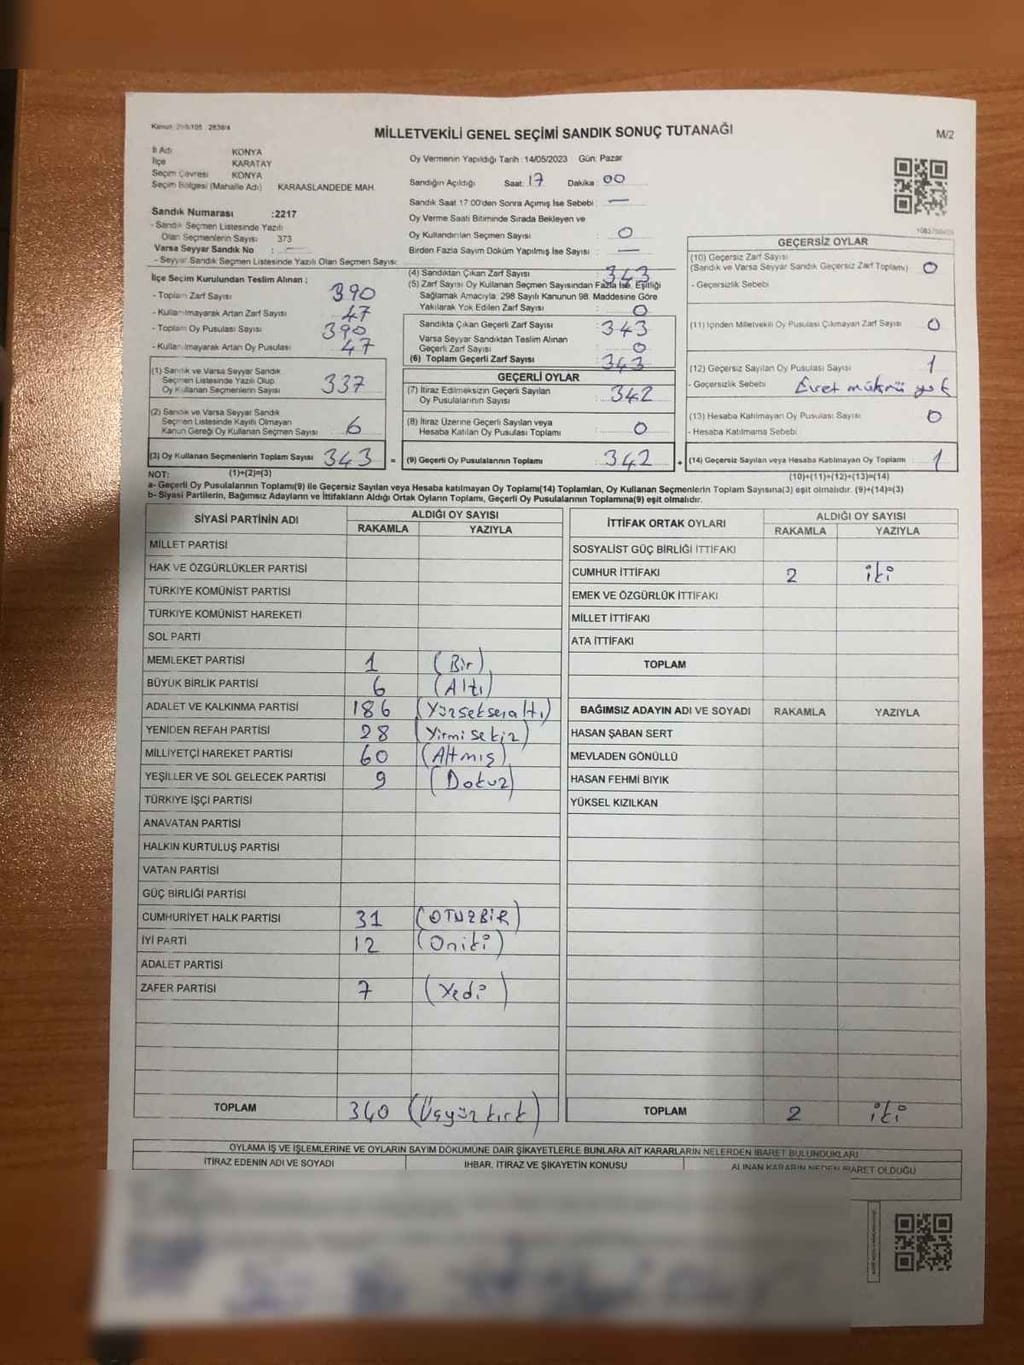 MİLLETVEKİLİ GENEL SEÇİMİ SANDIK SONUÇ TUTANAĞI
M/2
İl Adı KONYA
İlçe KARATAY
Seçim Çevresi KONYA
Seçim Bölgesi (Mahalle Adı) KARAASLANDEDE MAH.
Sandık Numarası :2217
- Sandık Seçmen Listesinde Yazılı
Olan Seçmenlerin Sayısı 373
Varsa Seyyar Sandık No :
- Seyyar Sandık Seçmen Listesinde Yazılı Olan Seçmen Sayısı
Oy Vermenin Yapıldığı Tarih :14/05/2023 Gün: Pazar
Sandığın Açıldığı Saat: 17 Dakika 00
Sandık Saat 17:00'den Sonra Açımış İse Sebebi : —
Oy Verme Saati Bitiminde Sırada Bekleyen ve
Oy Kullandırılan Seçmen Sayısı : 0
Birden Fazla Sayım Döküm Yapılmış İse Sayısı : —
İlçe Seçim Kurulundan Teslim Alınan :
- Toplam Zarf Sayısı 390
- Kullanılmayarak Artan Zarf Sayısı 47
- Toplam Oy Pusulası Sayısı 390
- Kullanılmayarak Artan Oy Pusulası 47
(1) Sandık ve Varsa Seyyar Sandık
Seçmen Listesinde Yazılı Olup
Oy Kullanan Seçmenlerin Sayısı 337
(2) Sandık ve Varsa Seyyar Sandık
Seçmen Listesinde Kayıtlı Olmayan
Kanun Gereği Oy Kullanan Seçmen Sayısı 6
(3) Oy Kullanan Seçmenlerin Toplam Sayısı 343 =
(1)+(2)=(3)
(4) Sandıktan Çıkan Zarf Sayısı : 343
(5) Zarf Sayısı Oy Kullanan Seçmen Sayısından Fazla İse, Eşitliği
Sağlamak Amacıyla; 298 Sayılı Kanunun 98. Maddesine Göre
Yakılarak Yok Edilen Zarf Sayısı : 0
Sandıkta Çıkan Geçerli Zarf Sayısı : 343
Varsa Seyyar Sandıktan Teslim Alınan
Geçerli Zarf Sayısı : 0
(6) Toplam Geçerli Zarf Sayısı : 343
GEÇERLİ OYLAR
(7) İtiraz Edilmeksizin Geçerli Sayılan
Oy Pusulalarının Sayısı : 342
(8) İtiraz Üzerine Geçerli Sayılan veya
Hesaba Katılan Oy Pusulası Toplamı : 0
(9) Geçerli Oy Pusulalarının Toplamı : 342 +
GEÇERSİZ OYLAR
(10) Geçersiz Zarf Sayısı
(Sandık ve Varsa Seyyar Sandık Geçersiz Zarf Toplamı) 0
- Geçersizlik Sebebi
(11) İçinden Milletvekili Oy Pusulası Çıkmayan Zarf Sayısı 0
(12) Geçersiz Sayılan Oy Pusulası Sayısı 1
- Geçersizlik Sebebi : yok
(13) Hesaba Katılmayan Oy Pusulası Sayısı 0
- Hesaba Katılmama Sebebi
(14) Geçersiz Sayılan veya Hesaba Katılmayan Oy Toplamı 1
(10)+(11)+(12)+(13)=(14)
NOT:
a- Geçerli Oy Pusulalarının Toplamı(9) ile Geçersiz Sayılan veya Hesaba Katılmayan Oy Toplamı(14) Toplamları, Oy Kullanan Seçmenlerin Toplam Sayısına(3) eşit olmalıdır. (9)+(14)=(3)
b- Siyasi Partilerin, Bağımsız Adayların ve İttifakların Aldığı Ortak Oyların Toplamı, Geçerli Oy Pusulalarının Toplamına(9) eşit olmalıdır.
SİYASİ PARTİNİN ADI ALDIĞI OY SAYISI
RAKAMLA YAZIYLA
MİLLET PARTİSİ
HAK VE ÖZGÜRLÜKLER PARTİSİ
TÜRKİYE KOMÜNİST PARTİSİ
TÜRKİYE KOMÜNİST HAREKETİ
SOL PARTİ
MEMLEKET PARTİSİ 1 (Bir)
BÜYÜK BİRLİK PARTİSİ 6 (Altı)
ADALET VE KALKINMA PARTİSİ 186 (Yüzseksenaltı)
YENİDEN REFAH PARTİSİ 28 (Yirmi sekiz)
MİLLİYETÇİ HAREKET PARTİSİ 60 (Altmış)
YEŞİLLER VE SOL GELECEK PARTİSİ 9 (Dokuz)
TÜRKİYE İŞÇİ PARTİSİ
ANAVATAN PARTİSİ
HALKIN KURTULUŞ PARTİSİ
VATAN PARTİSİ
GÜÇ BİRLİĞİ PARTİSİ
CUMHURİYET HALK PARTİSİ 31 (OTUZBİR)
İYİ PARTİ 12 (Oniki)
ADALET PARTİSİ
ZAFER PARTİSİ 7 (Yedi)
TOPLAM 340 (Üçyüzkırk)
İTTİFAK ORTAK OYLARI ALDIĞI OY SAYISI
RAKAMLA YAZIYLA
SOSYALİST GÜÇ BİRLİĞİ İTTİFAKI
CUMHUR İTTİFAKI 2 iki
EMEK VE ÖZGÜRLÜK İTTİFAKI
MİLLET İTTİFAKI
ATA İTTİFAKI
TOPLAM
BAĞIMSIZ ADAYIN ADI VE SOYADI RAKAMLA YAZIYLA
HASAN ŞABAN SERT
MEVLADEN GÖNÜLLÜ
HASAN FEHMİ BIYIK
YÜKSEL KIZILKAN
TOPLAM 2 iki
OYLAMA İŞ VE İŞLEMLERİNE VE OYLARIN SAYIM DÖKÜMÜNE DAİR ŞİKAYETLERLE BUNLARA AİT KARARLARIN NELERDEN İBARET BULUNDUKLARI
İTİRAZ EDENİN ADI VE SOYADI IHBAR, İTİRAZ VE ŞİKAYETİN KONUSU ALINAN KARARIN NEDEN İBARET OLDUĞU